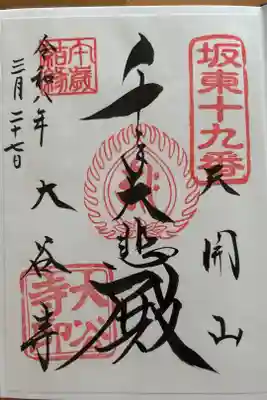 坂東十九番
天開山
千手大悲殿
午歳
結縁
大谷寺
令和八年
三月二十七日